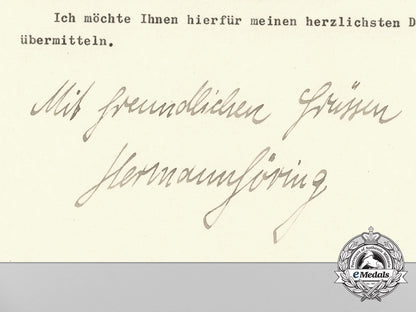 Ich möchte Ihnen hierfür meinen herzlichsten D
übermitteln.
Mit freundlichen Grüssen
Hermann Göring
eMedals